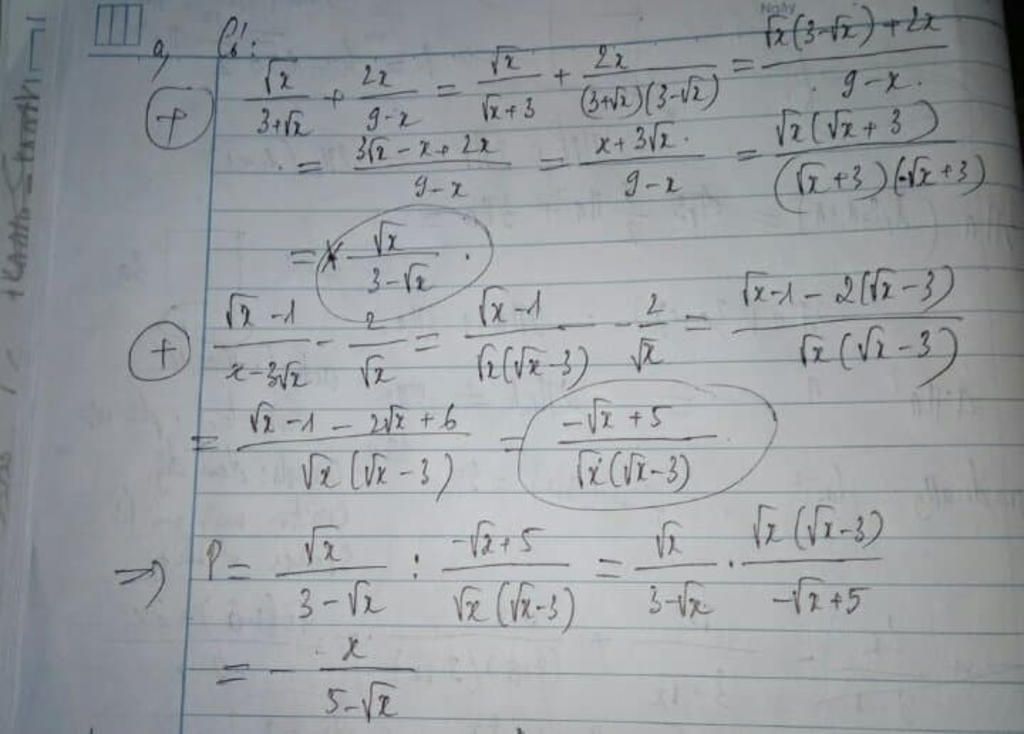 Ngày
III
a, Có:
(+) √x/(3+√x) + 2x/(9-x) = √x/(√x+3) + 2x/((3+√x)(3-√x)) = (√x(3-√x)+2x)/(9-x).
= (3√x-x+2x)/(9-x) = (x+3√x)/(9-x) = (√x(√x+3))/((√x+3)(-√x+3))
= √x/(3-√x).
(+) (√x-1)/(x-3√x) - 2/√x = (√x-1)/(√x(√x-3)) - 2/√x = (√x-1-2(√x-3))/(√x(√x-3))
= (√x-1-2√x+6)/(√x(√x-3)) = (-√x+5)/(√x(√x-3))
=> P = √x/(3-√x) : (-√x+5)/(√x(√x-3)) = √x/(3-√x) . (√x(√x-3))/(-√x+5)
= - x/(5-√x)